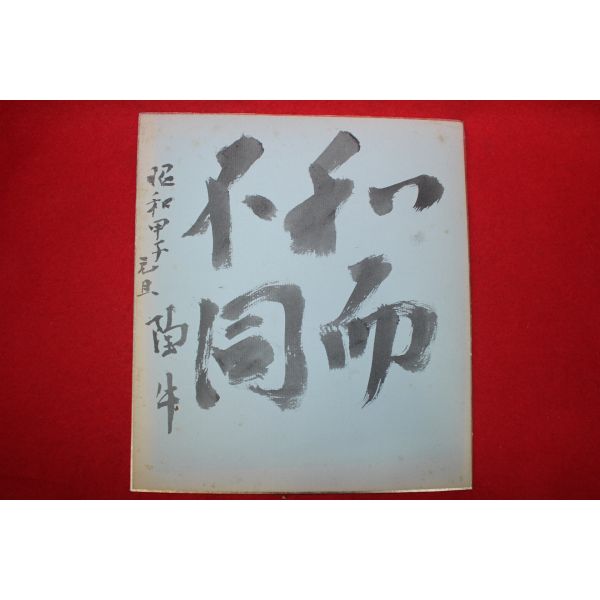 和而
不同
昭和甲子元旦
陶牛